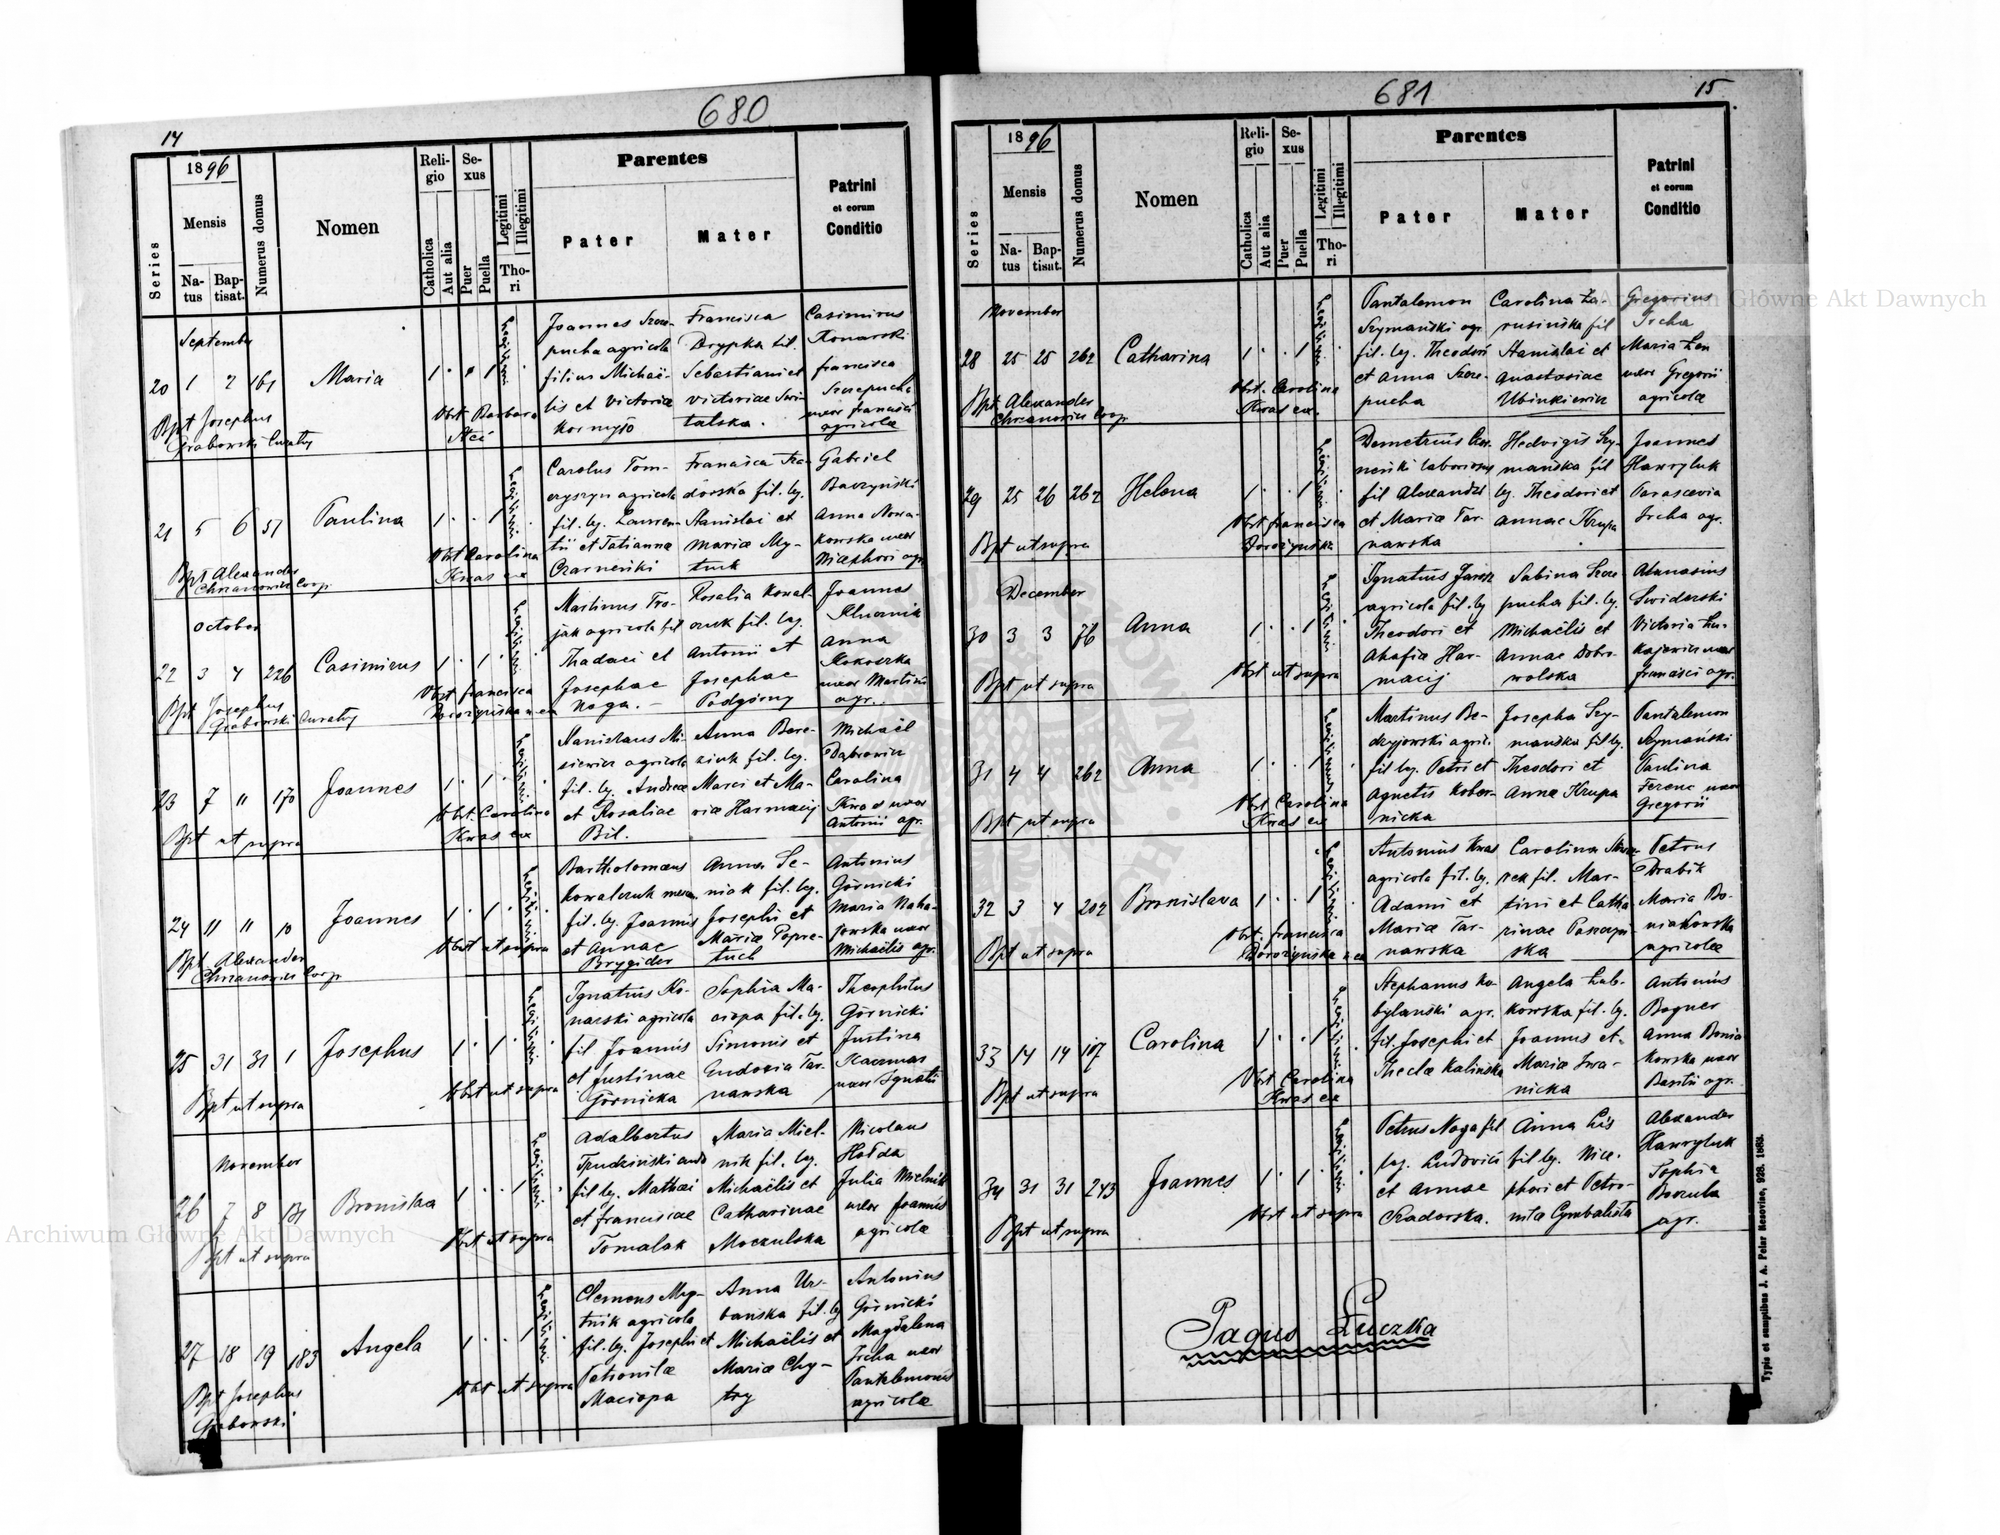 680
14
1896
Series
Mensis
Natus
Baptisat.
Numerus domus
Nomen
Religio
Catholica
Aut alia
Sexus
Puer
Puella
Legitimi
Illegitimi
Thori
Parentes
Pater
Mater
Patrini
et eorum
Conditio
September
20 1 2 161 Maria 1 1
Joannes Szcze-
pucha agricola
filius Michaë-
lis et Victoriae
Francisca
Drypka fil.
Sebastiani et
Victoriae Swi-
talska.
Casimirus
Konarski
francisca
Szczepucha
uxor francisci
agricolae
Bpt Josephus
Grabowski Curatus
Obst Barbara
21 5 6 57 Paulina 1 1
Carolus Tom-
czyszyn agricola
fil. leg. Lauren-
tii et Tatianna
Czarnecki
Stanislai et
Mariae My-
tnik
Gabriel
Baczyński
Anna Nowa-
kowska uxor
Nicephori agr.
Bpt Alexander
Chrzanowicz Coop.
Obst Carolina
Kwas ex
October
22 3 4 226 Casimirus 1 1
Martinus Tro-
jak agricola fil
Thadaei et
Josephae
Noga.
Rosalia Kowal-
czuk fil. leg.
Antonii et
Josephae
Podgórny
Joannes
Anna
Kokoszka
uxor Martini
agr.
Bpt Josephus
Grabowski Curatus
Obst francisca
Dorożyńska ex
23 7 " 170 Joannes 1 1
Stanislaus Mi-
siewicz agricola
fil. leg. Andreae
et Rosaliae
Bil.
Anna Bere-
ziuk fil. leg.
Marci et Ma-
riae Harmacij
Michaël
Dąbrowicz
Carolina
Kwas uxor
Antonii agr.
Bpt ut supra
Obst. Carolina
Kwas ex
24 11 11 10 Joannes 1 1
Bartholomaeus
Kowalczuk
fil. leg. Joannis
et Annae
Brygider
Anna Se-
niok fil. leg.
Josephi et
Mariae Popre-
tuch
Antonius
Górnicki
Maria Naha-
jowska uxor
Michaëlis agr.
Bpt Alexander
Chrzanowicz Coop.
Obst ut supra
25 31 31 1 Josephus 1 1
Ignatius Ko-
narski agricola
fil Joannis
et Justinae
Górnicka
Sophia Ma-
ciopa fil. leg.
Simonis et
Eudoxia Tar-
nawska
Theophilus
Górnicki
Justina
Kaczmar
uxor Ignatii
Bpt ut supra
Obst ut supra
November
26 7 8 131 Bronislaa 1 1
Adalbertus
Trudziński
fil leg. Mathaei
et franciscae
Tomalak
Maria Miel-
nik fil. leg.
Michaëlis et
Catharinae
Moczulska
Nicolaus
Hołda
Julia Mielnik
uxor Joannis
agricolae
Bpt ut supra
Obst ut supra
27 18 19 183 Angela 1 1
Clemens Myt-
nik agricola
fil. leg. Josephi et
Petronilae
Maciopa
Anna Ur-
bańska fil. leg
Michaëlis et
Mariae Chy-
try
Antonius
Górnicki
Magdalena
Ircha uxor
Pantalemonis
agricolae
Bpt Josephus
Grabowski
Obst ut supra
681
15
1896
Series
Mensis
Natus
Baptisat.
Numerus domus
Nomen
Religio
Catholica
Aut alia
Sexus
Puer
Puella
Legitimi
Illegitimi
Thori
Parentes
Pater
Mater
Patrini
et eorum
Conditio
November
28 25 25 262 Catharina 1 1
Pantalemon
Szymański agr
fil. leg. Theodori
et Anna Szcze-
pucha
Carolina Ła-
rusińska fil
Stanislai et
Anastasiae
Ubinkiewicz
Gregorius
Ircha
Maria
uxor Gregorii
agricolae
Bpt Alexander
Chrzanowicz Coop.
Obst. Carolina
Kwas ex.
29 25 26 262 Helena 1 1
Demetrius Czar-
necki laboriosus
fil Alexandri
et Mariae Tar-
nawska
Hedvigis Szy-
mańska fil
leg. Theodori et
Annae Krupa
Joannes
Hawryluk
Parascevia
Ircha agr.
Bpt ut supra
Obst francisca
Dorożyńska
December
30 3 3 76 Anna 1 1
Ignatius Jarosz
agricola fil. leg
Theodori et
Ahafia Har-
macij
Sabina Szcze-
pucha fil. leg.
Michaëlis et
Annae Dobro-
wolska
Athanasius
Swiderski
Victoria Łu-
kajewicz uxor
francisci agr.
Bpt ut supra
Obst ut supra
31 4 4 262 Anna 1 1
Martinus Be-
dryjowski agri.
fil leg. Petri et
Agnetis Kober-
nicka
Josepha Szy-
mańska fil leg.
Theodori et
Annae Krupa
Pantalemon
Szymański
Paulina
Ferenc uxor
Gregorii
Bpt ut supra
Obst Carolina
Kwas ex
32 3 4 202 Bronislava 1 1
Antonius Kwas
agricola fil. leg.
Adami et
Mariae Tar-
nawska
Carolina
fil. Mar-
tini et Catha-
rinae Paszyń-
ska
Petrus
Drabik
Maria Bo-
niakowska
agricolae
Bpt ut supra
Obst. francisca
Dorożyńska ex
33 14 14 107 Carolina 1 1
Stephanus Ko-
bylański agr.
fil. Josephi et
Theclae Kalińska
Angela Łab-
kowska fil. leg.
Joannis et
Mariae Iwa-
nicka
Antonius
Bogner
Anna Bonia-
kowska uxor
Basilii agr.
Bpt ut supra
Obst Carolina
Kwas ex
34 31 31 243 Joannes 1 1
Petrus Noga fil
leg. Ludovici
et Annae
Szadorska.
Anna Lis
fil leg. Nice-
phori et Petro-
nilae Cymbalista
Alexander
Hawryluk
Sophia
Boczula
agr.
Bpt ut supra
Obst ut supra
Pagus Łuczka
Typis et sumptibus J. A. Pelar Resoviae, 928. 1883.
Archiwum Główne Akt Dawnych
Archiwum Główne Akt Dawnych